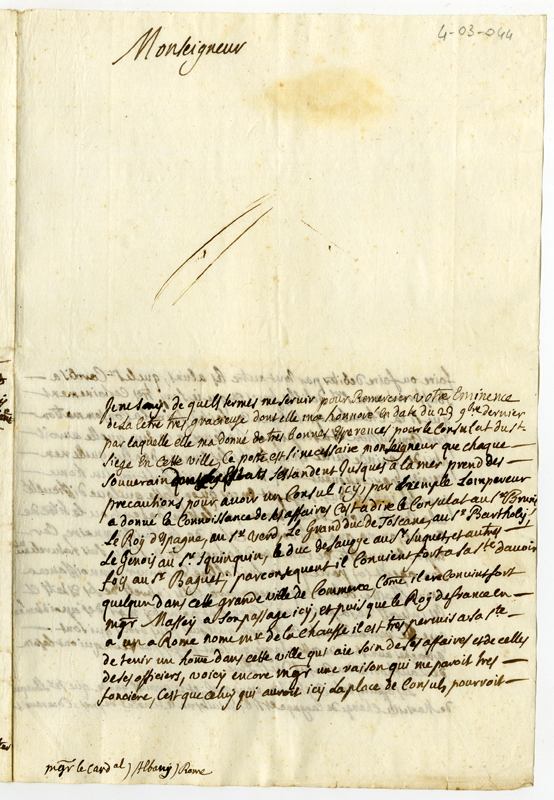 4-03-044
Monseigneur
Je ne scay de quels termes me servir pour Remercier Votre Eminence
de La Letre tres gracieuse dont elle m'a honnoré en date du 29 9bre dernier
par laquelle elle m'a donné de tres bonnes Esperences pour le Consulat du st
Siege En cette ville, Ce poste est si necessaire monseigneur que chaque
Souverain Estats s'estandent Jusques a la mer prend des
precautions pour avoir un Consul icy; par Exemple Lempereur
a donné le Connoissance de ses affaires C'est a dire le Consulat au sr Bruni
Le Roy d'Espagne, au sr Le Grand duc de Toscane, au sr Bartholi
Le Genois au sr Squinquin, le duc de Savoye au sr Suquet, et autres
au sr Baguet; par consequent il Convient fort a sa ste d'avoir
quelqun dans cette grande ville de Commerce, Come il en Convint fort
mgr Massey a Son passage icy, et puis que le Roy de france en
a un a Rome nomé mr de la Chausse il est tres permis a sa ste
de tenir un home dans cette ville qui aie soin de ses affaires et de celles
de ses officiers, voicy encore mgr une raison qui me paroit tres
fonciere, C'est que celuy qui auroit icy La place de Consul pourroit
mgr le Card al) Albany) Rome